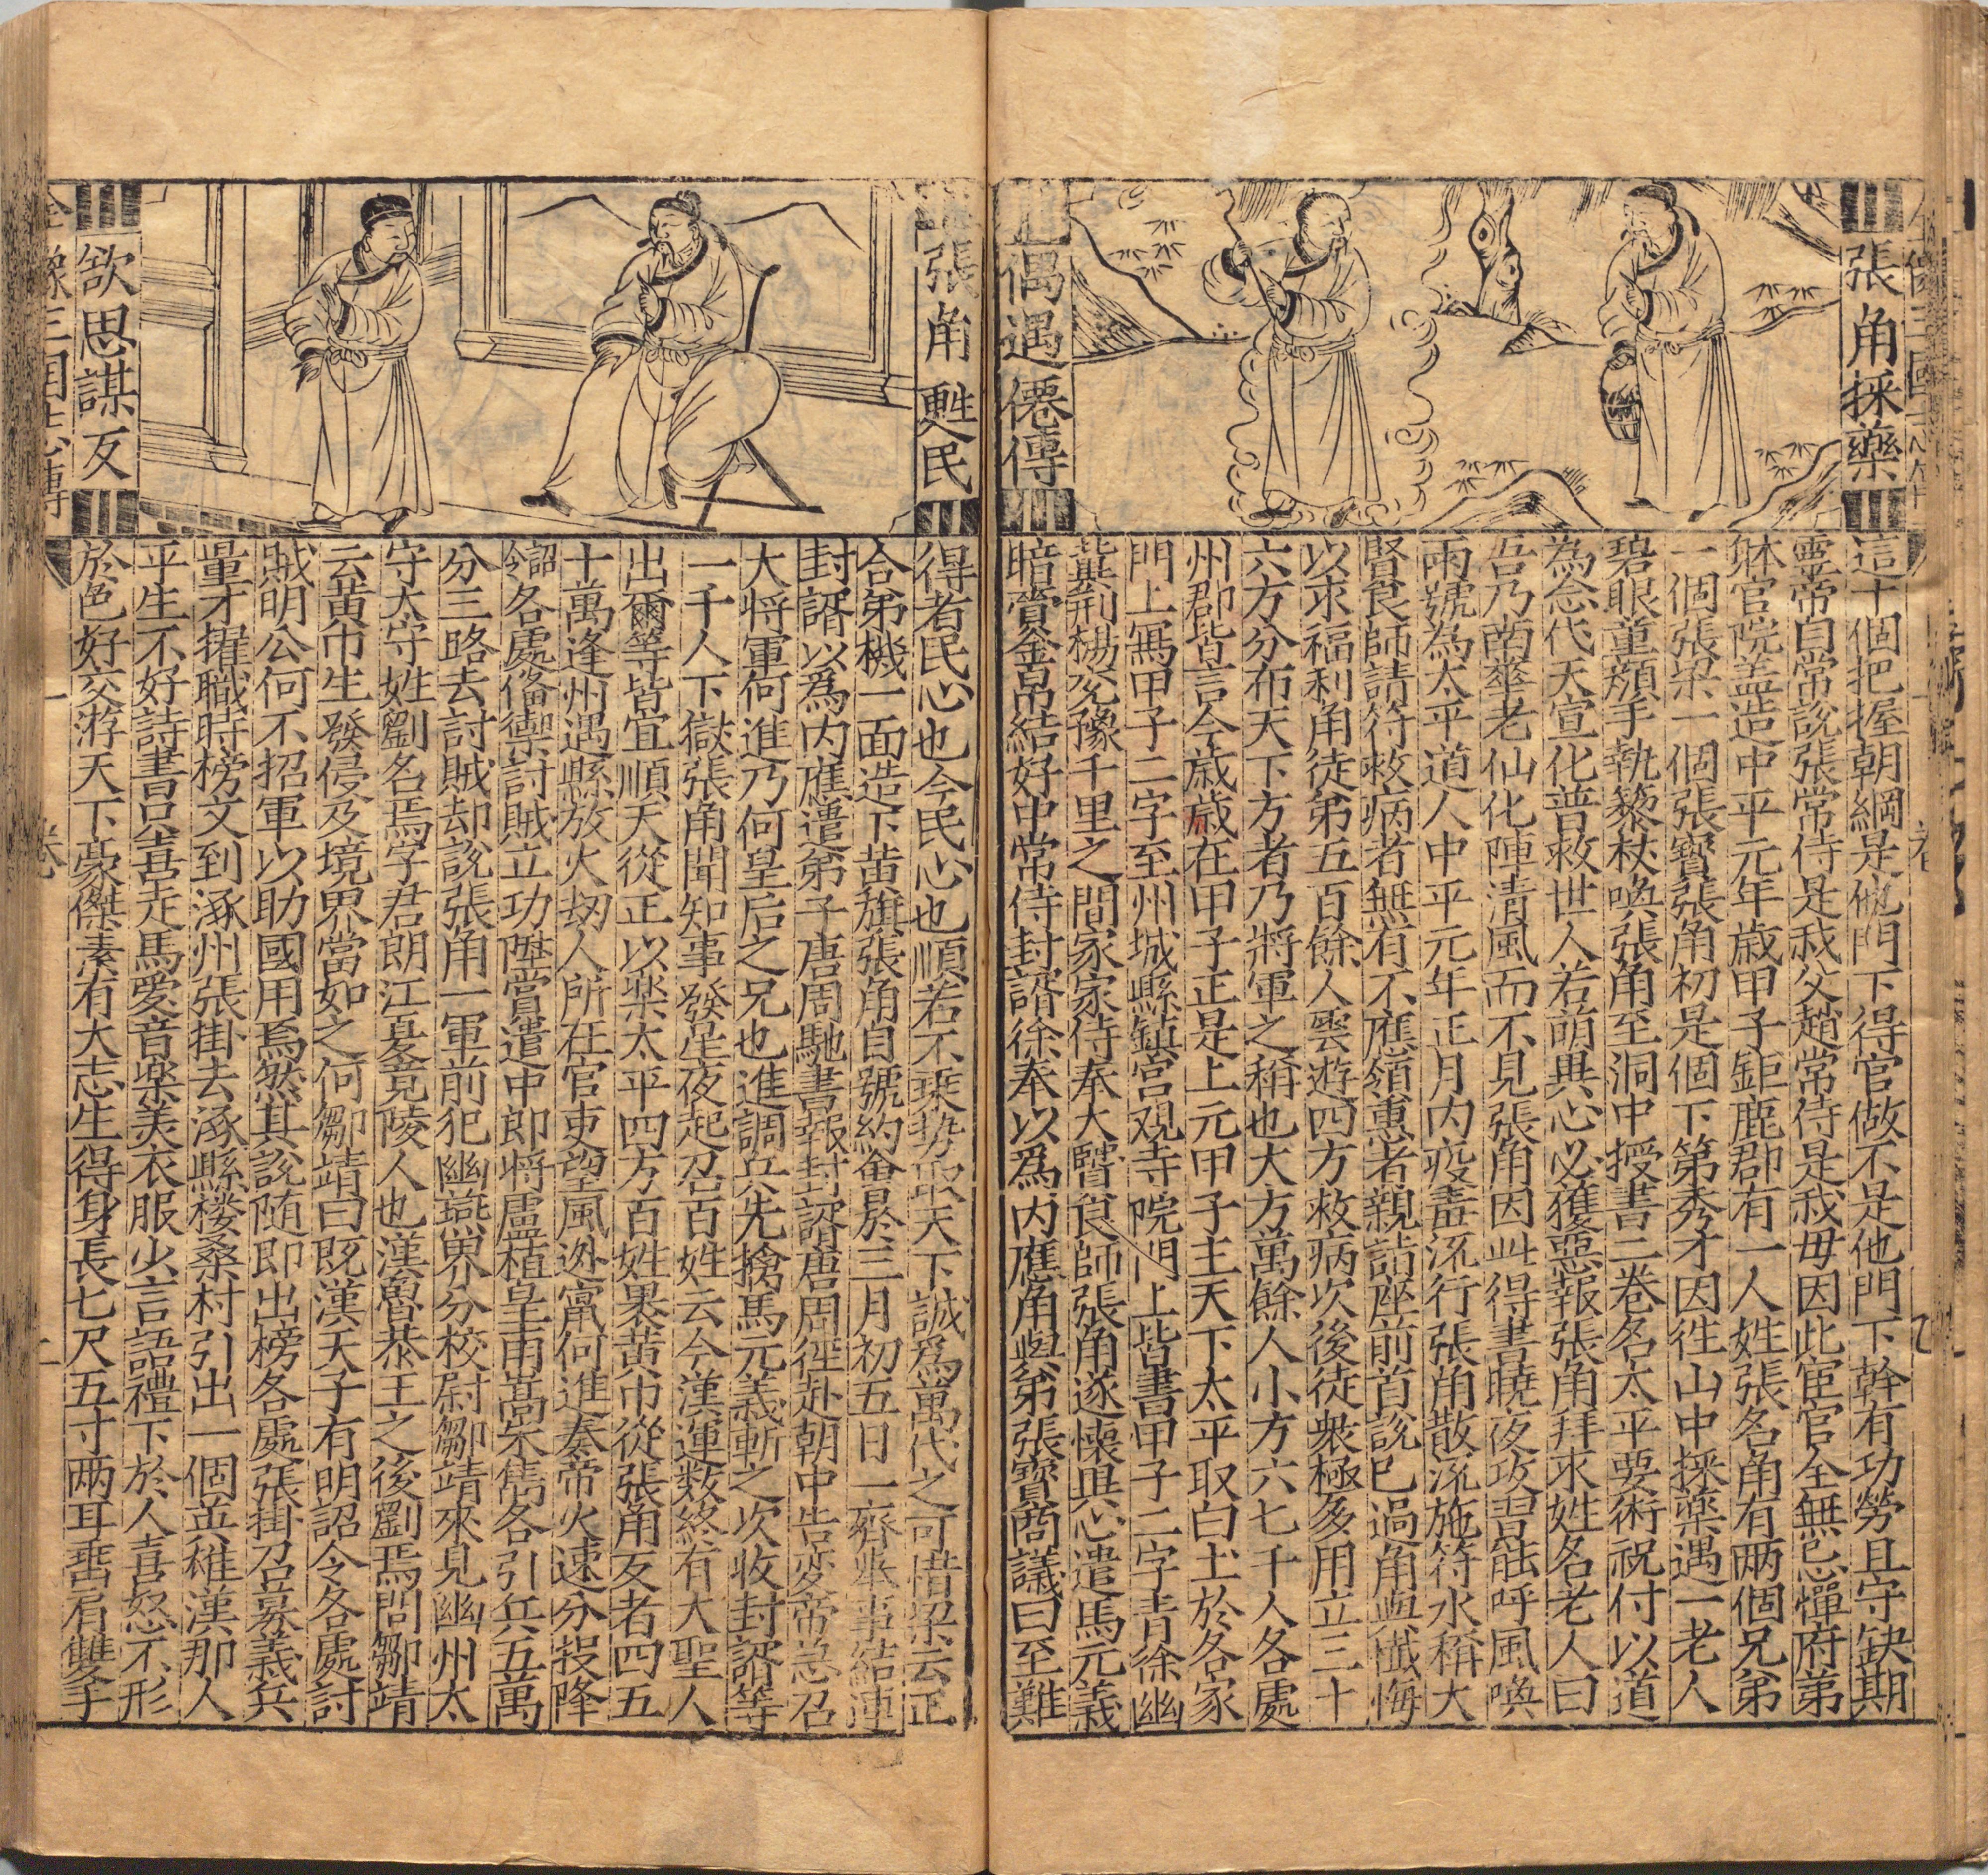 張角採藥
偶遇僊傳
這十個把握朝綱是他門下得官做不是他門下幹有功勞且守缺期
靈帝自常說張常侍是我父趙常侍是我母因此宦官全無忌憚府第
躰官院盖造中平元年歲甲子鉅鹿郡有一人姓張名角有两個兄弟
一個張梁一個張寶張角初是個下第秀才因徃山中採藥遇一老人
碧眼童顔手執藜杖喚張角至洞中授書三巻名太平要術祝付以道
為念代天宣化普救世人若萌異心必獲惡報張角拜求姓名老人曰
吾乃南華老仙化陣清風而不見張角因此得書曉夜攻習能呼風喚
雨號為太平道人中平元年正月内疫毒流行張角散流施符水稱大
賢良師請符救病者無有不應嶺惠者親詣座前首說已過角與懺悔
以求福利角徒第五百餘人雲遊四方救病次後徒衆極多用立三十
六方分布天下方者乃將軍之稱也大方萬餘人小方六七千人各處
州郡皆言今歲歲在甲子正是上元甲子主天下太平取白土於各家
門上寫甲子二字至州城縣鎮宫观寺院門上皆書甲子二字青徐幽
冀荆楊兖豫千里之間家家侍奉大賢良師張角遂懷異心遣馬元義
暗賫金帛結好中常侍封諝徐奉以為内應角與弟張寶商議曰至難
張角甦民
欲思謀反
得者民心也今民心也順若不乗势取天下誠為萬代之可惜梁云正
合弟機一面造下黄旗張角自號約會於三月初五日一齊举事結連
封諝以為内應遣弟子唐周馳書報封諝唐周徃赴朝中告变帝急召
大将軍何進乃何皇后之兄也進調兵先擒馬元義斬之次收封諝等
一千人下獄張角聞知事發星夜起召百姓云今漢運数終有大聖人
出爾等皆宜順天從正以楽太平四方百姓裹黄巾從張角反者四五
十萬逢州遇縣放火刼人所在官吏望風迯竄何進奏帝火速分投降
詔令各處俻禦討賊立功陞賞遣中郎将盧植皇甫嵩朱雋各引兵五萬
分三路去討賊却說張角一軍前犯幽燕界分校尉鄒靖來見幽州太
守太守姓劉名焉字君朗江夏竟陵人也漢魯恭王之後劉焉問鄒靖
云黄巾生發侵及境界當如之何鄒靖曰既漢天子有明詔令各處討
賊明公何不招軍以助國用焉然其說随即出榜各處張掛召募義兵
量才擢職時榜文到涿州張掛去涿縣楼桑村引出一個英雄漢那人
平生不好詩書只喜走馬愛音楽美衣服少言語禮下於人喜怒不形
於色好交游天下豪傑素有大志生得身長七尺五寸两耳垂肩雙手
全像三国志傳
卷一
二